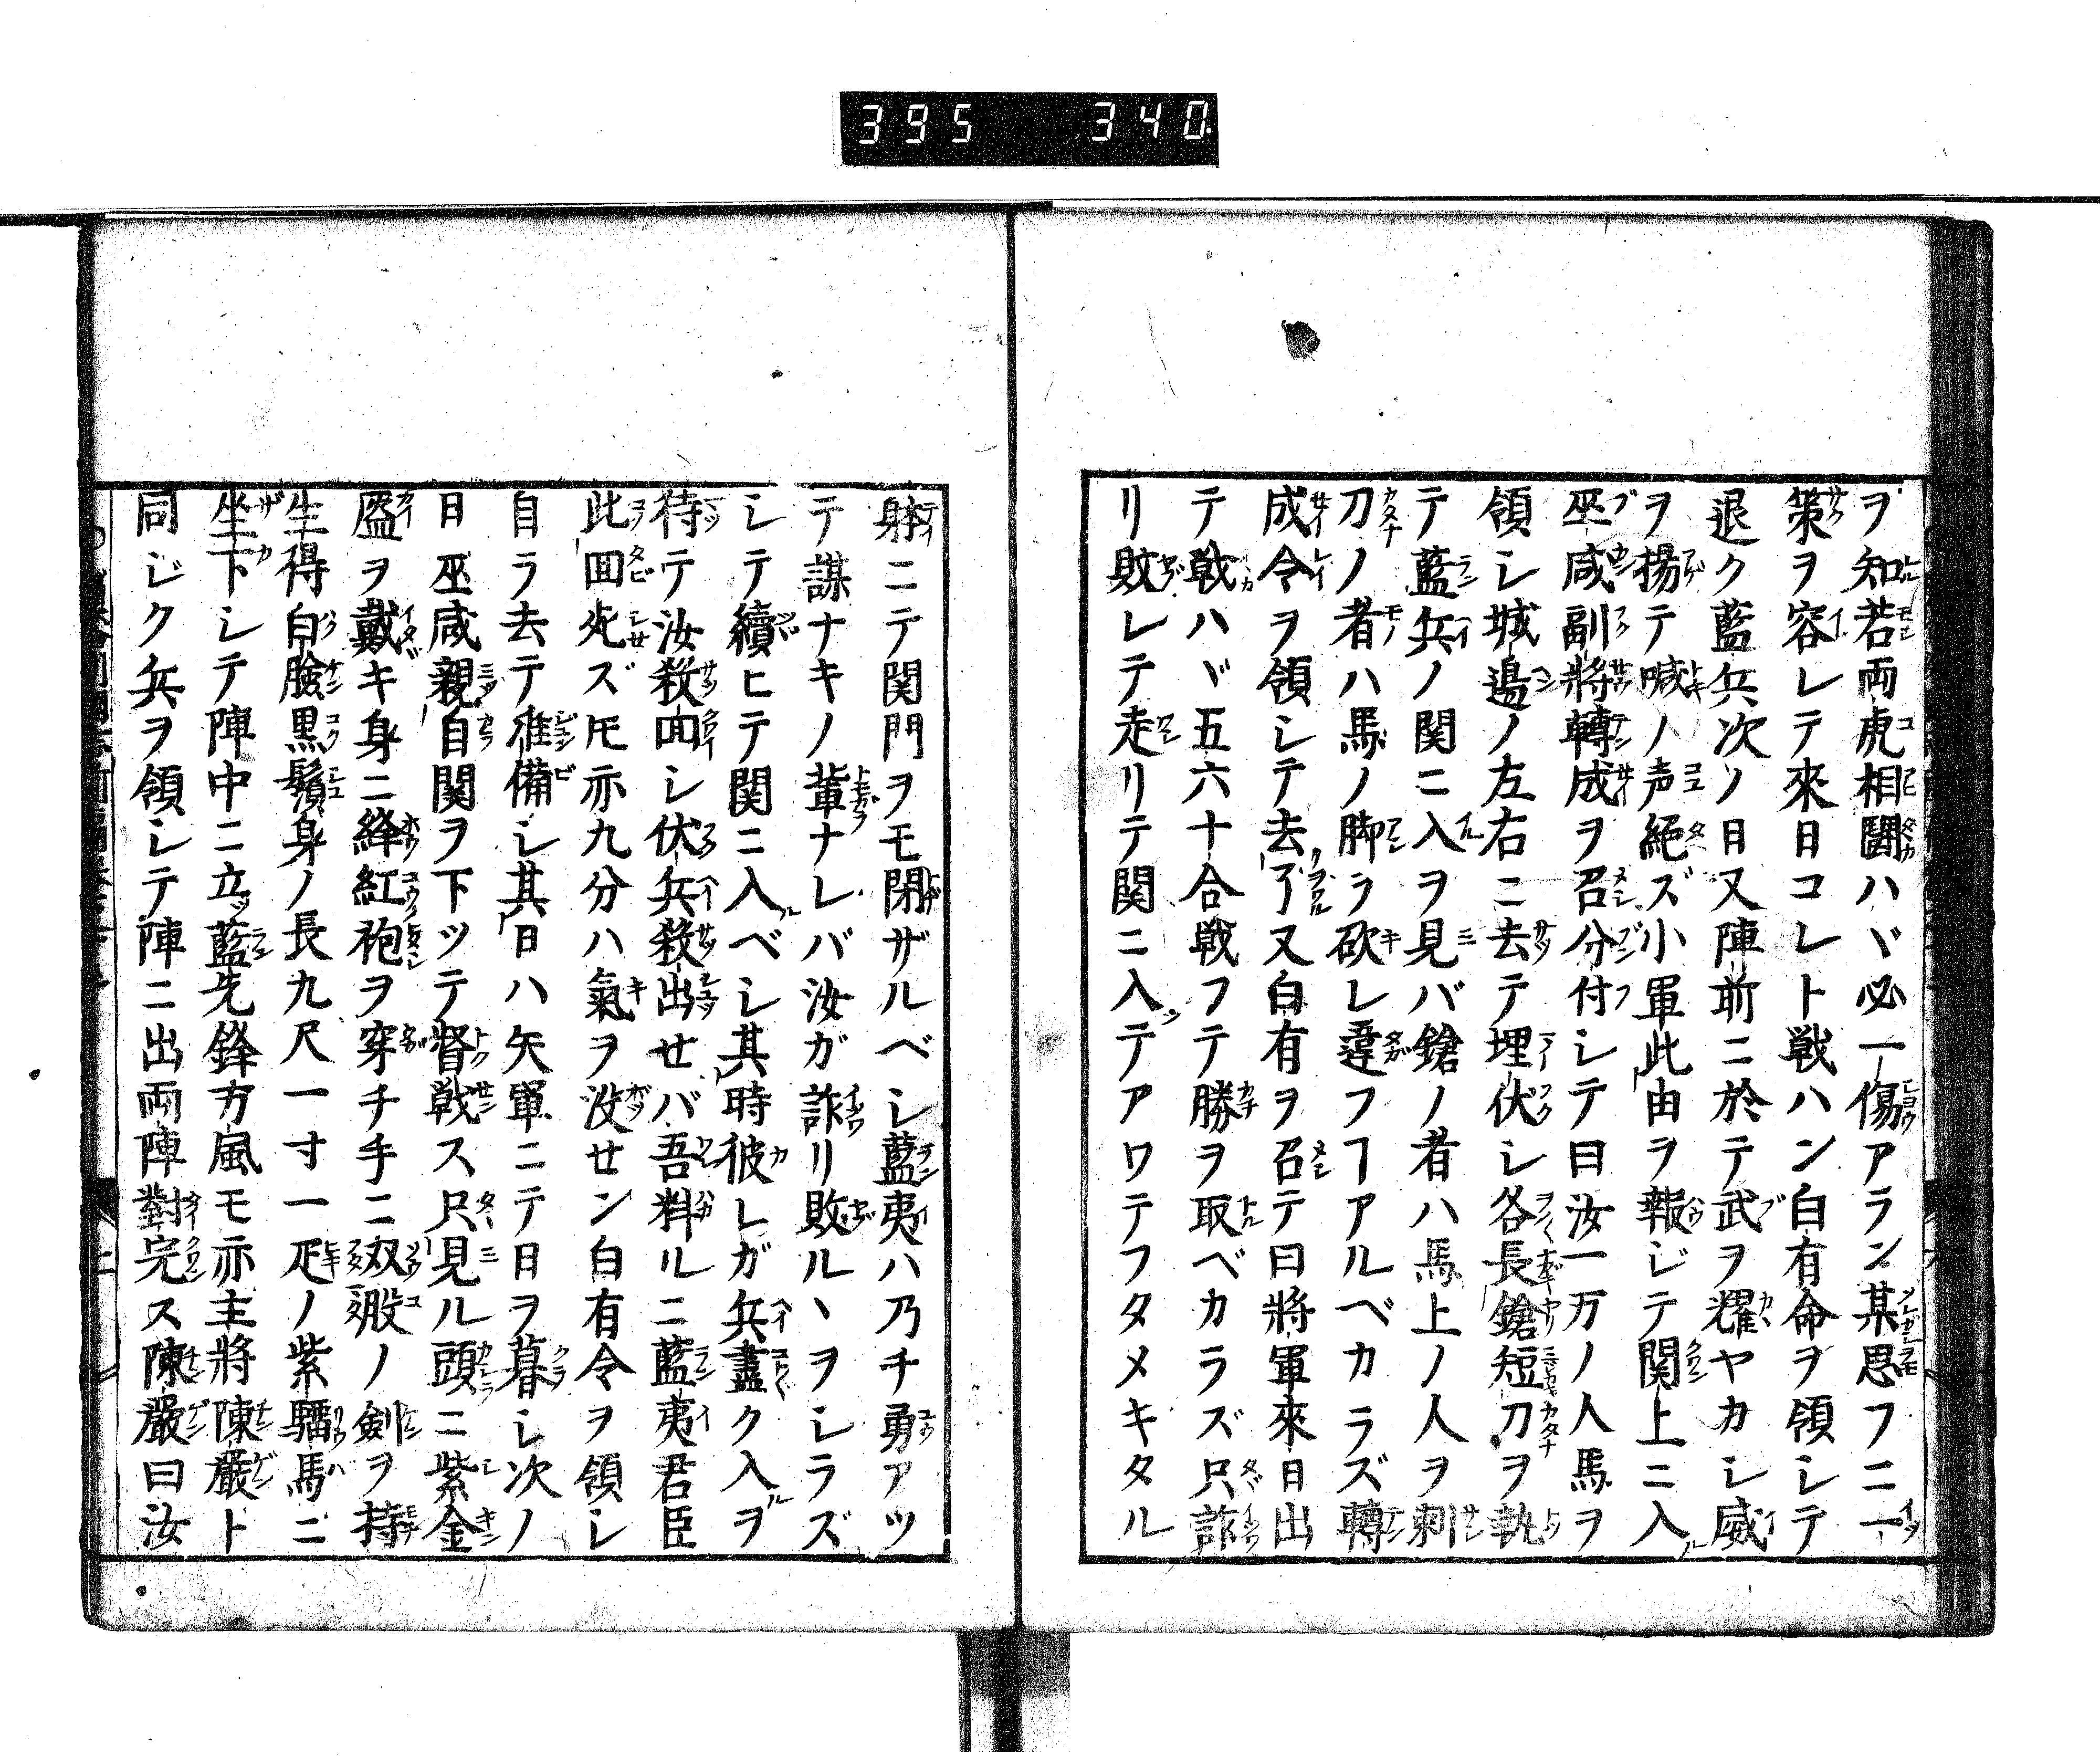 395 340
ヲ知若両虎相闘ハヾ必一傷アラン某思フニ一
策ヲ容レテ來日コレト戦ハン白有命ヲ領シテ
退ク藍兵次ノ日又陣前ニ於テ武ヲ耀ヤカシ威
ヲ揚テ喊ノ声絶ズ小軍此由ヲ報ジテ関上ニ入
巫咸副將轉成ヲ召分付シテ曰汝一万ノ人馬ヲ
領シ城邉ノ左右ニ去テ埋伏シ各長鎗短刀ヲ執
テ藍兵ノ関ニ入ヲ見バ鎗ノ者ハ馬上ノ人ヲ刺
刀ノ者ハ馬ノ脚ラ砍レ違フヿアルベカラズ轉
成令ヲ領シテ去了又白有ヲ召テ曰將軍來日出
テ戦ハヾ五六十合戦フテ勝ヲ取ベカラズ只詐
リ敗レテ走リテ関ニ入テアワテフタメキタル
躰ニテ関門ヲモ閉ザルベシ藍夷ハ乃チ勇アツ
テ謀ナキノ輩ナレバ汝ガ詐リ敗ルヽヲシラズ
シテ續ヒテ関ニ入ベシ其時彼レガ兵盡ク入ヲ
待テ汝殺回シ伏兵殺出せバ吾料ルニ藍夷君臣
此回死ズ𪜈亦九分ハ氣ヲ没せン白有令ヲ領シ
自ラ去テ准備シ其日ハ矢軍ニテ日ヲ暮シ次ノ
日巫咸親自関ヲ下ツテ督戦ス只見ル頭ニ紫金
盔ヲ戴キ身ニ絳紅袍ヲ穿チ手ニ双股ノ剣ヲ持
生得白臉黒鬚身ノ長九尺一寸一疋ノ紫騮馬ニ
坐下シテ陣中ニ立ッ藍先鋒方風モ亦主將陳嚴ト
同ジク兵ヲ領シテ陣ニ出両陣對完ス陳嚴曰汝